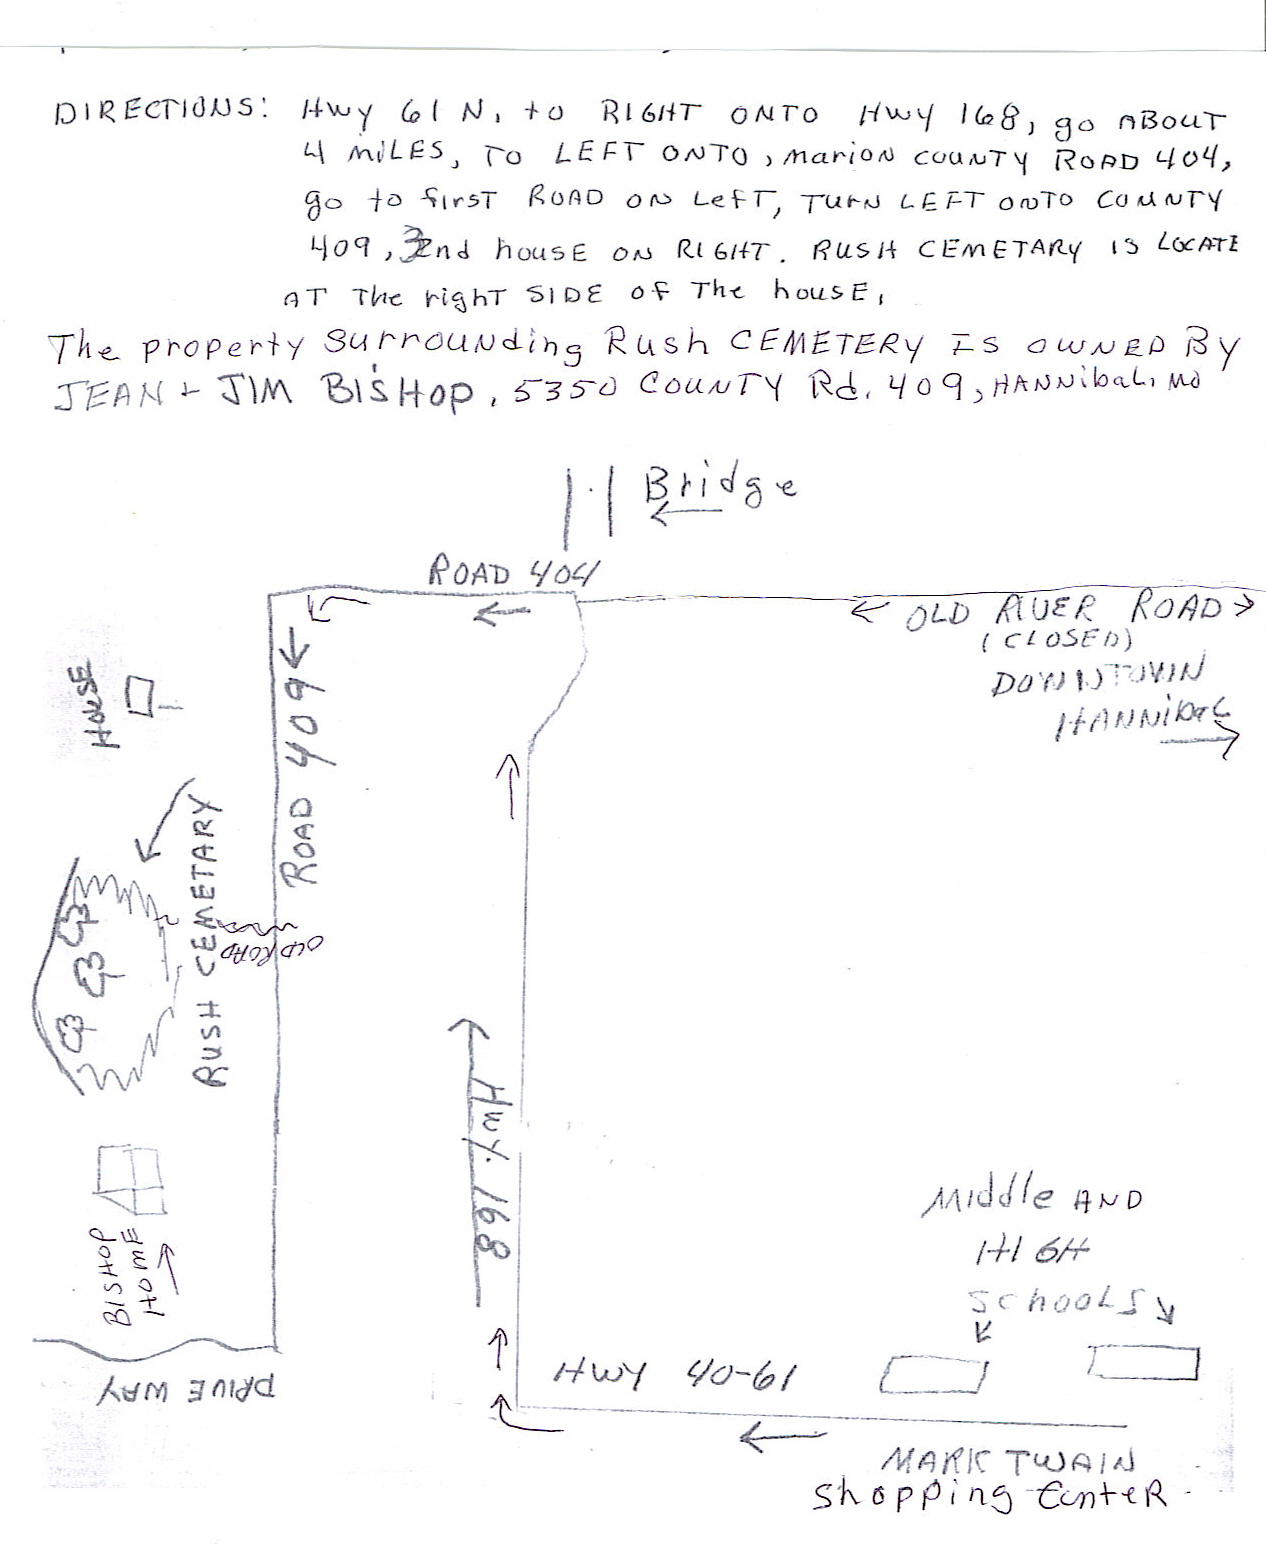 DIRECTIONS: Hwy 61 N. to RIGHT ONTO Hwy 168, go ABOUT
4 MILES, TO LEFT ONTO, MARION COUNTY ROAD 404,
go to first ROAD ON LEFT, TURN LEFT ONTO COUNTY
409, nd house ON RIGHT. RUSH CEMETARY IS LOCATE
AT The right SIDE OF The house,
The property surrounding Rush CEMETERY IS OWNED By
JEAN + JIM BISHOP, 5350 COUNTY Rd. 409, HANNibaL, Mo
Bridge
ROAD 404
OLD RIVER ROAD
(CLOSED)
DOWNTOWN
HANNibaL
HOUSE
ROAD 409
RUSH CEMETARY
OLD ROAD
Hwy. 168
Middle AND
HIGH
SCHOOLS
BISHOP
HOME
HWY 40-61
DRIVE WAY
MARK TWAIN
Shopping CENTER